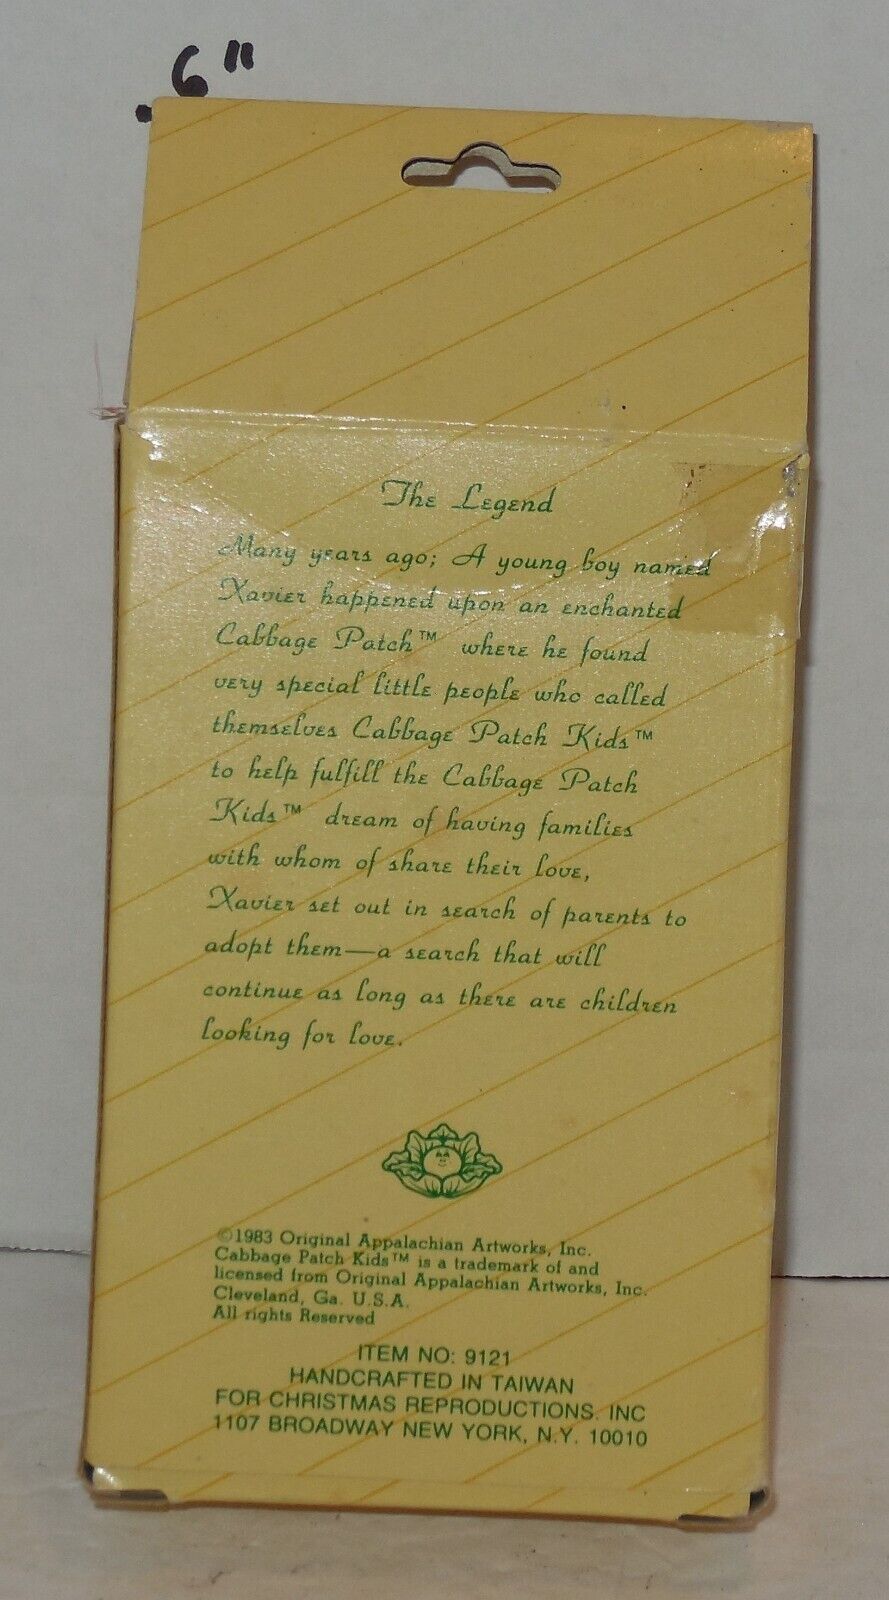 6"
The Legend
Many years ago; A young boy named
Xavier happened upon an enchanted
Cabbage Patch™ where he found
very special little people who called
themselves Cabbage Patch Kids™
to help fulfill the Cabbage Patch
Kids™ dream of having families
with whom of share their love,
Xavier set out in search of parents to
adopt them—a search that will
continue as long as there are children
looking for love.
©1983 Original Appalachian Artworks, Inc.
Cabbage Patch Kids™ is a trademark of and
licensed from Original Appalachian Artworks, Inc.
Cleveland, Ga. U.S.A.
All rights Reserved
ITEM NO: 9121
HANDCRAFTED IN TAIWAN
FOR CHRISTMAS REPRODUCTIONS. INC
1107 BROADWAY NEW YORK, N.Y. 10010